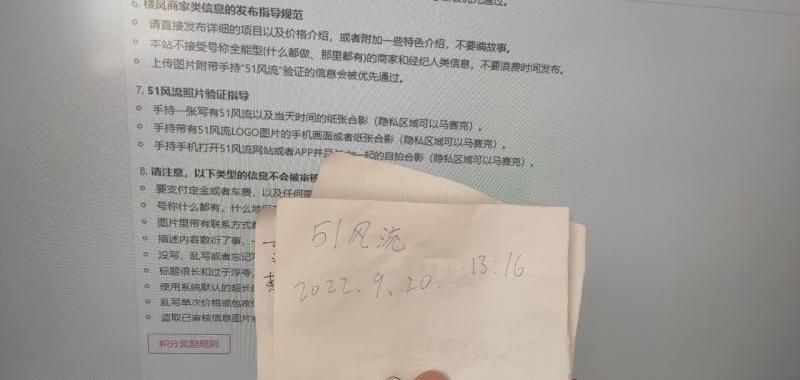 6. 楼凤商家类信息的发布指导规范
请直接发布详细的项目以及价格介绍，或者附加一些特色介绍，不要编故事。
本站不接受号称全能型(什么都做、那里都有)的商家和经纪人类信息，不要浪费时间发布。
上传图片附带手持"51风流"验证的信息会被优先通过。
7. 51风流照片验证指导
手持一张写有51风流以及当天时间的纸张合影（隐私区域可以马赛克）。
手持带有51风流LOGO图片的手机画面或者纸张合影（隐私区域可以马赛克）。
手持手机打开51风流网站或者APP并且与 一起的自拍合影（隐私区域可以马赛克）。
8. 请注意，以下类型的信息不会被审核
要支付定金或者车费，以及任何需
号称什么都有，什么地
图片里带有联系方式
描述内容敷衍了事，
没写、乱写或者忘记
标题很长和过于浮夸
使用系统默认的超长
乱写单次价格或包夜
盗取已审核信息图片
积分奖励规则
51风流
2022.9.20. 13:16